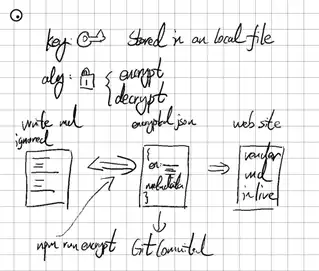 key: stored in an local file
alg: { encrypt
decrypt
write md
ignored
encrypted json
{
en:
metadata
}
web site
render
md
in live
npm run encrypt
Git Committed